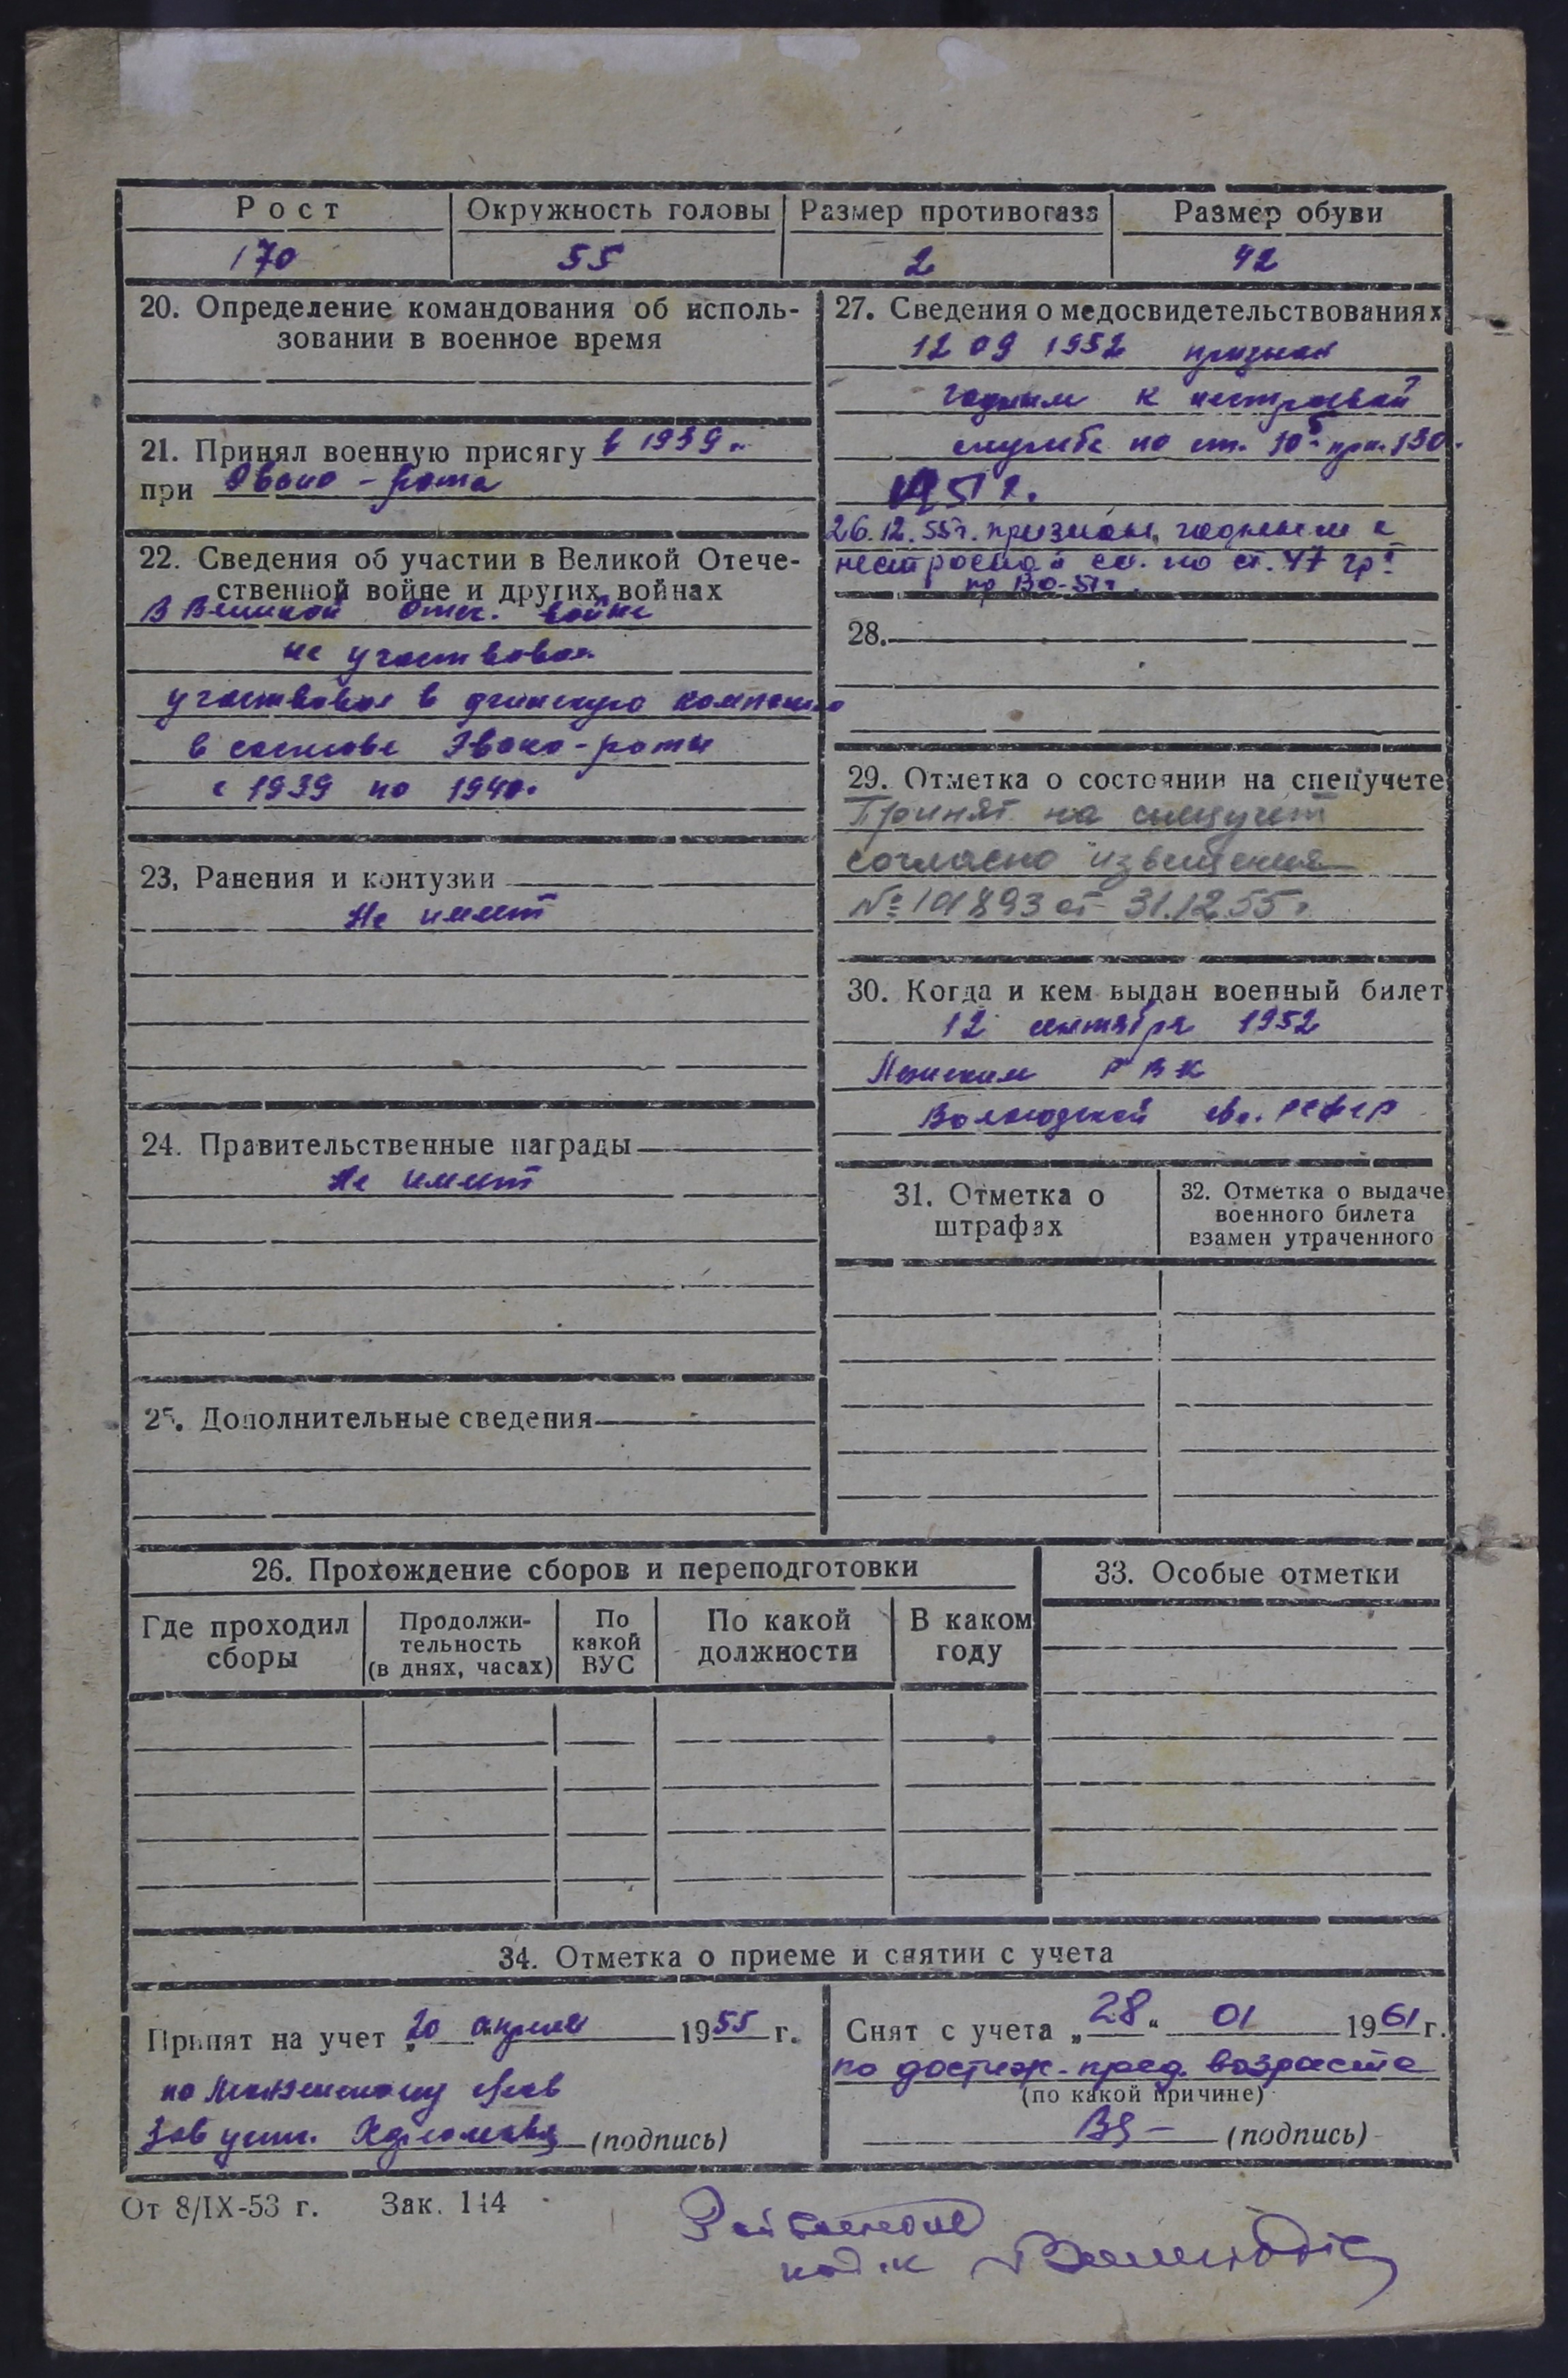 Рост Окружность головы Размер противогаза Размер обуви
170 55 2 42
20. Определение командования об исполь-
зовании в военное время
21. Принял военную присягу в 1939 г.
при Эвако-рота
22. Сведения об участии в Великой Отече-
ственной войне и других войнах
В Великой Отеч. войне
не участвовал
участвовал в финскую компанию
в составе Эвако-роты
с 1939 по 1940.
23. Ранения и контузии
Не имеет
24. Правительственные награды
Не имеет
25. Дополнительные сведения
27. Сведения о медосвидетельствованиях
12 09 1952 признан
годным к нестроевой
службе по ст. 10 пр. 130
51 г.
26.12.55г. признан годным к
нестроевой сл. по ст. 47 гр. 
пр ВО-51 г.
28.
29. Отметка о состоянии на спецучете
Принят на спецучет
согласно извещения
№ 101893 от 31.12.55 г.
30. Когда и кем выдан военный билет
12 сентября 1952
РВК
Вологодской обл. РСФСР
31. Отметка о
штрафах
32. Отметка о выдаче
военного билета
взамен утраченного
26. Прохождение сборов и переподготовки
Где проходил
сборы
Продолжи-
тельность
(в днях, часах)
По
какой
ВУС
По какой
должности
В каком
году
33. Особые отметки
34. Отметка о приеме и снятии с учета
Принят на учет „20 апреля 1955 г.
по
Зав уч. (подпись)
Снят с учета „28“ 01 1961 г.
по достиж. пред. возраста
(по какой причине)
(подпись)
От 8/IX-53 г. Зак. 144